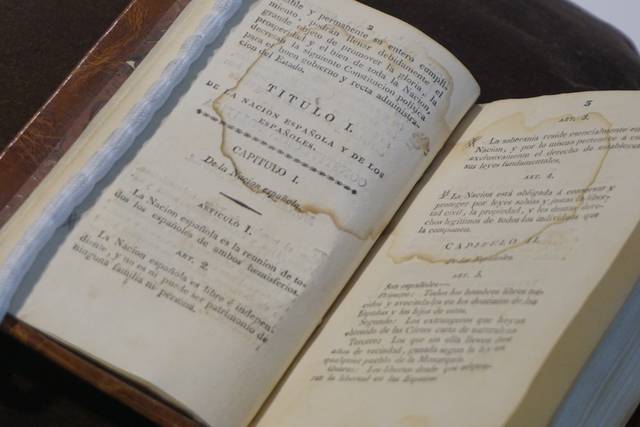 2
ble y permanente su entero cumpli-
miento, podrán llenar debidamente el
grande objeto de promover la gloria, la
prosperidad y el bien de toda la Nacion,
decretan la siguiente Constitucion política
para el buen gobierno y recta administra-
cion del Estado.
TITULO I.
DE LA NACION ESPAÑOLA Y DE LOS
ESPAÑOLES.
CAPITULO I.
De la Nacion española.
ARTICULO I.
La Nacion española es la reunion de to-
dos los españoles de ambos hemisferios.
ART. 2.
La Nacion española es libre é indepen-
diente, y no es ni puede ser patrimonio de
ninguna familia ni persona.
3
ART. 3.
La soberanía reside esencialmente en
Nacion, y por lo mismo pertenece á
exclusivamente el derecho de establecer
sus leyes fundamentales.
ART. 4.
La Nacion está obligada á conservar y
proteger por leyes sabias y justas la liber-
tad civil, la propiedad, y los demas dere-
chos legítimos de todos los individuos que
la componen.
CAPITULO II.
De los Españoles.
ART. 5.
Son españoles
Primero: Todos los hombres libres na-
cidos y avecindados en los dominios de las
Españas y los hijos de estos.
Segundo: Los extrangeros que hayan
obtenido de las Córtes carta de naturaleza.
Tercero: Los que sin ella lleven diez
años de vecindad, ganada segun la ley en
qualquier pueblo de la Monarquía.
Los libertos desde que adquie-
ran la libertad en las Españas.